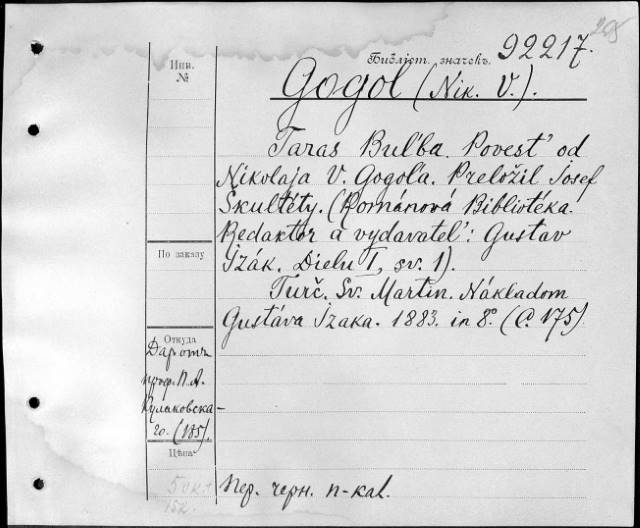 205
Библіот. значекъ. 92217.
Инв.
№
Gogol (Nik. V.).
Taras Buľba. Povesť od
Nikolaja V. Gogoľa. Preložil Josef
Škultéty. (Románová Bibliotéka.
Redaktor a vydavateľ: Gustav
Izák. Dielu I, sv. 1).
По заказу
Turč. Sv. Martin. Nákladom
Gustáva Izaka. 1883. in 8º. (C. 175)
Откуда
Даръ отъ
проф. П. А.
Кулаковска-
го. (185).
Цѣна
50 к.
152.
Пер. черн. п-кал.